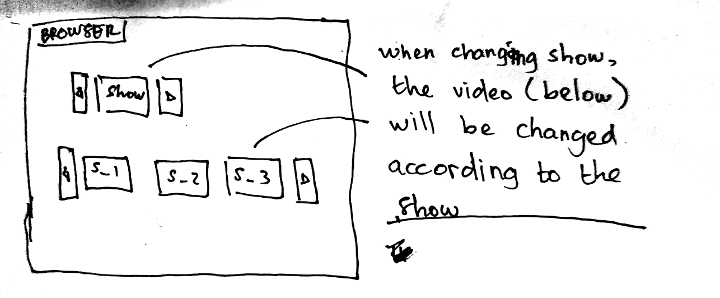 BROWSER
Show
S_1 S_2 S_3
when changing show,
the video (below)
will be changed
according to the
show